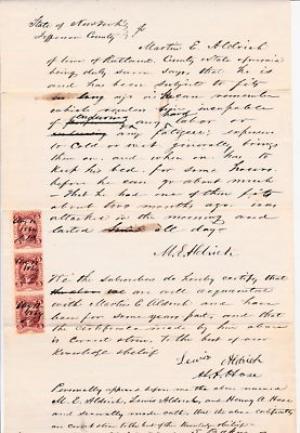 State of New York
Jefferson County } ss
Martin E. Aldrich
of town of Rutland, County & State aforesaid
being duly sworn says that he is
and has been subject to fits
as long ago as he can remember
which renders him incapable
of enduring hard labor or
any fatigue; exposure
to cold or wet generally brings
them on, and when on has to
keep his bed for some hours
before he can go about much
That he had one of these fits
about two months ago was
attacked in the morning and
lasted all day
M. E. Aldrich
We the subscribers do hereby certify that
we are well acquainted
with Martin E. Aldrich and have
been for some years past, and that
the certificate made by him above
is correct & true. To the best of our
Knowledge & belief
Lewis Aldrich
H. A. Hose
Personally appeared before me the above named
M. E. Aldrich, Lewis Aldrich, and Henry A. Hose
and severally made oath that the above certificates
are correct & true to the best of their knowledge & belief